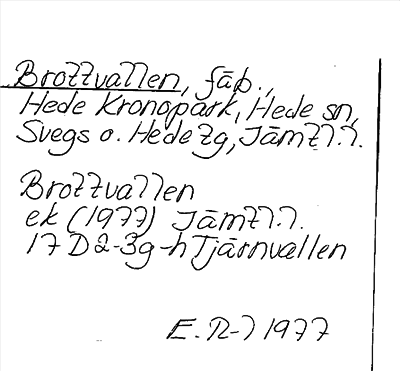 Brottvallen, fäb.,
Hede Kronopark, Hede sn,
Svegs o. Hede tg, Jämtl.l.
Brottvallen
ek (1977) Jämtl.l.
17 D 2-3g-h Tjärnvallen
E. R-l 1977